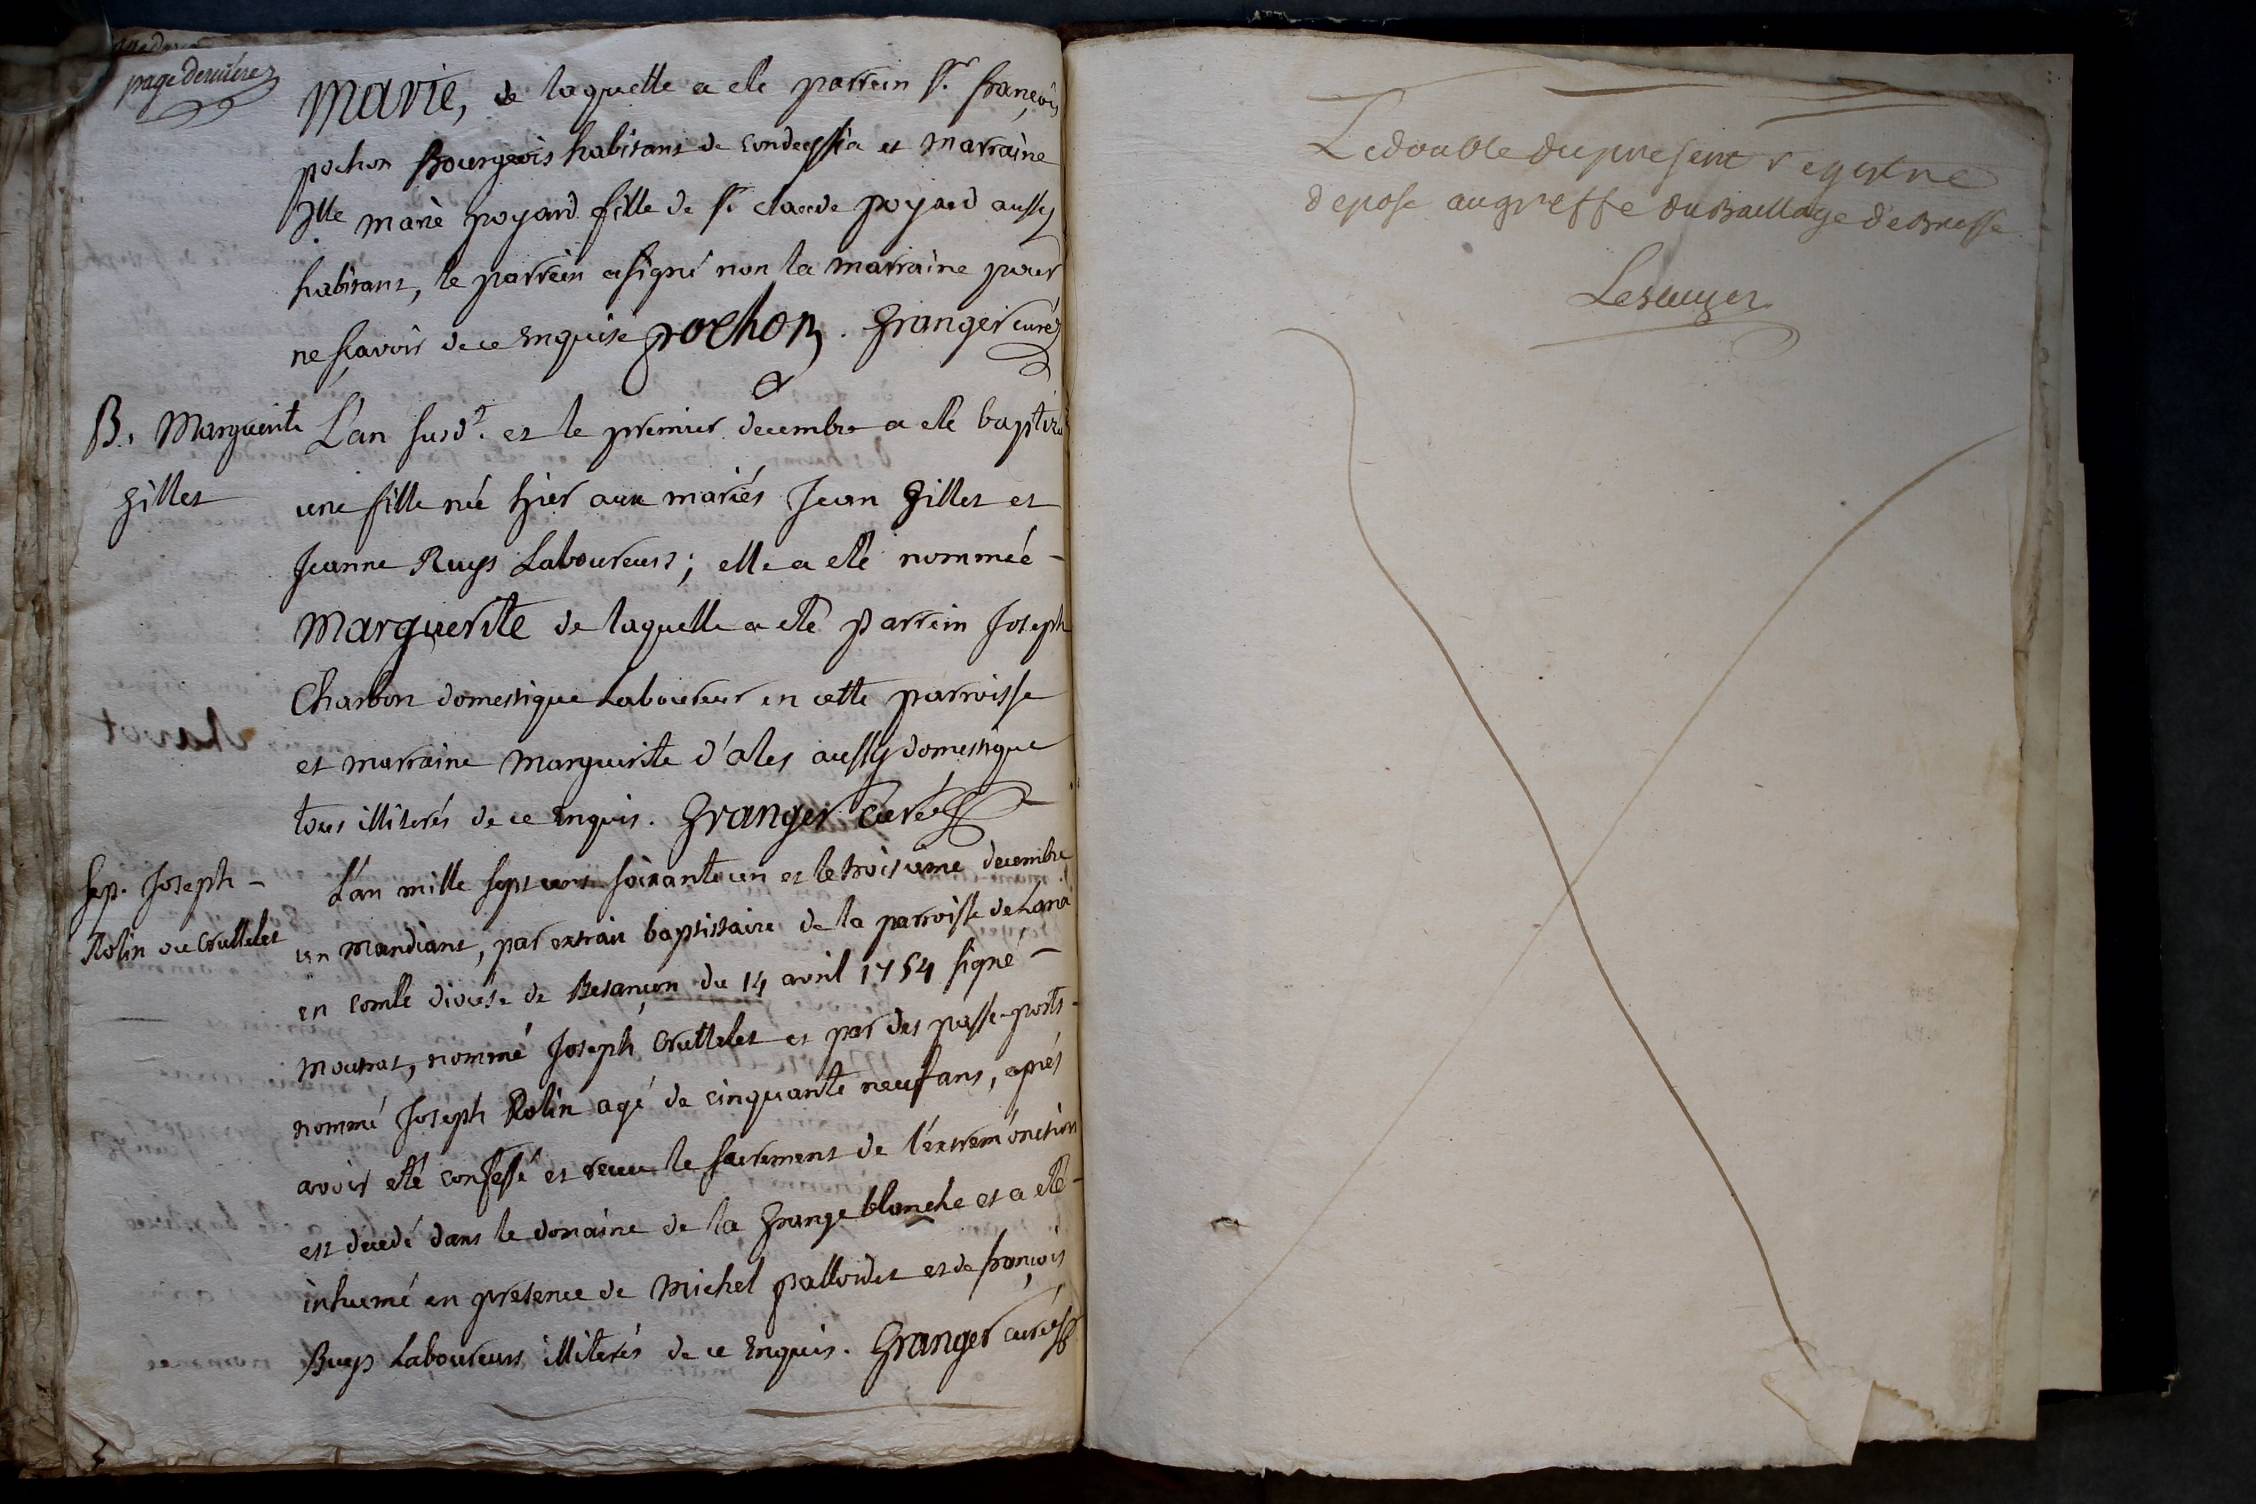 page derniere
Marie, de laquelle a eté parrein sr. françois
pochon Bourgeois habitant de condeyssia et marraine
Dlle marie poyard fille de sr claude poyard aussy
habitant, le parrein a signé non la marraine pour
ne sçavoir de ce enquise pochon. Granger curé
B. Marguerite
Gillet
L'an susdt. et le premier decembre a eté baptizé
une fille née hier aux mariés Jean Gillet et
Jeanne Ruys Laboureurs; elle a eté nommée -
Marguerite de laquelle a eté parrein Joseph
Charbon domestique Laboureur en cette parroisse
et marraine marguerite d'ales aussy domestique
tous illiterés de ce enquis. Granger Curé
Sep. Joseph -
Rolin ou Cruttelet
L'an mille sept cent soixante un et le troisieme decembre
un mandiant, par extrait baptistaire de la parroisse de
en comté diocese de Besançon du 14 avril 1754 signé -
mourat, nommé Joseph Cruttelet et par des passe-ports -
nommé Joseph Rolin agé de cinquante neuf ans, aprés
avoir eté confessé et recu le sacrement de l'extrem'onction
est decedé dans le domaine de la Grange blanche et a eté -
inhumé en presence de Michel palloidet et de françois
Buys Laboureurs illiterés de ce enquis. Granger curé
Le double du present registre
depose au greffe du Baillage de Bresse